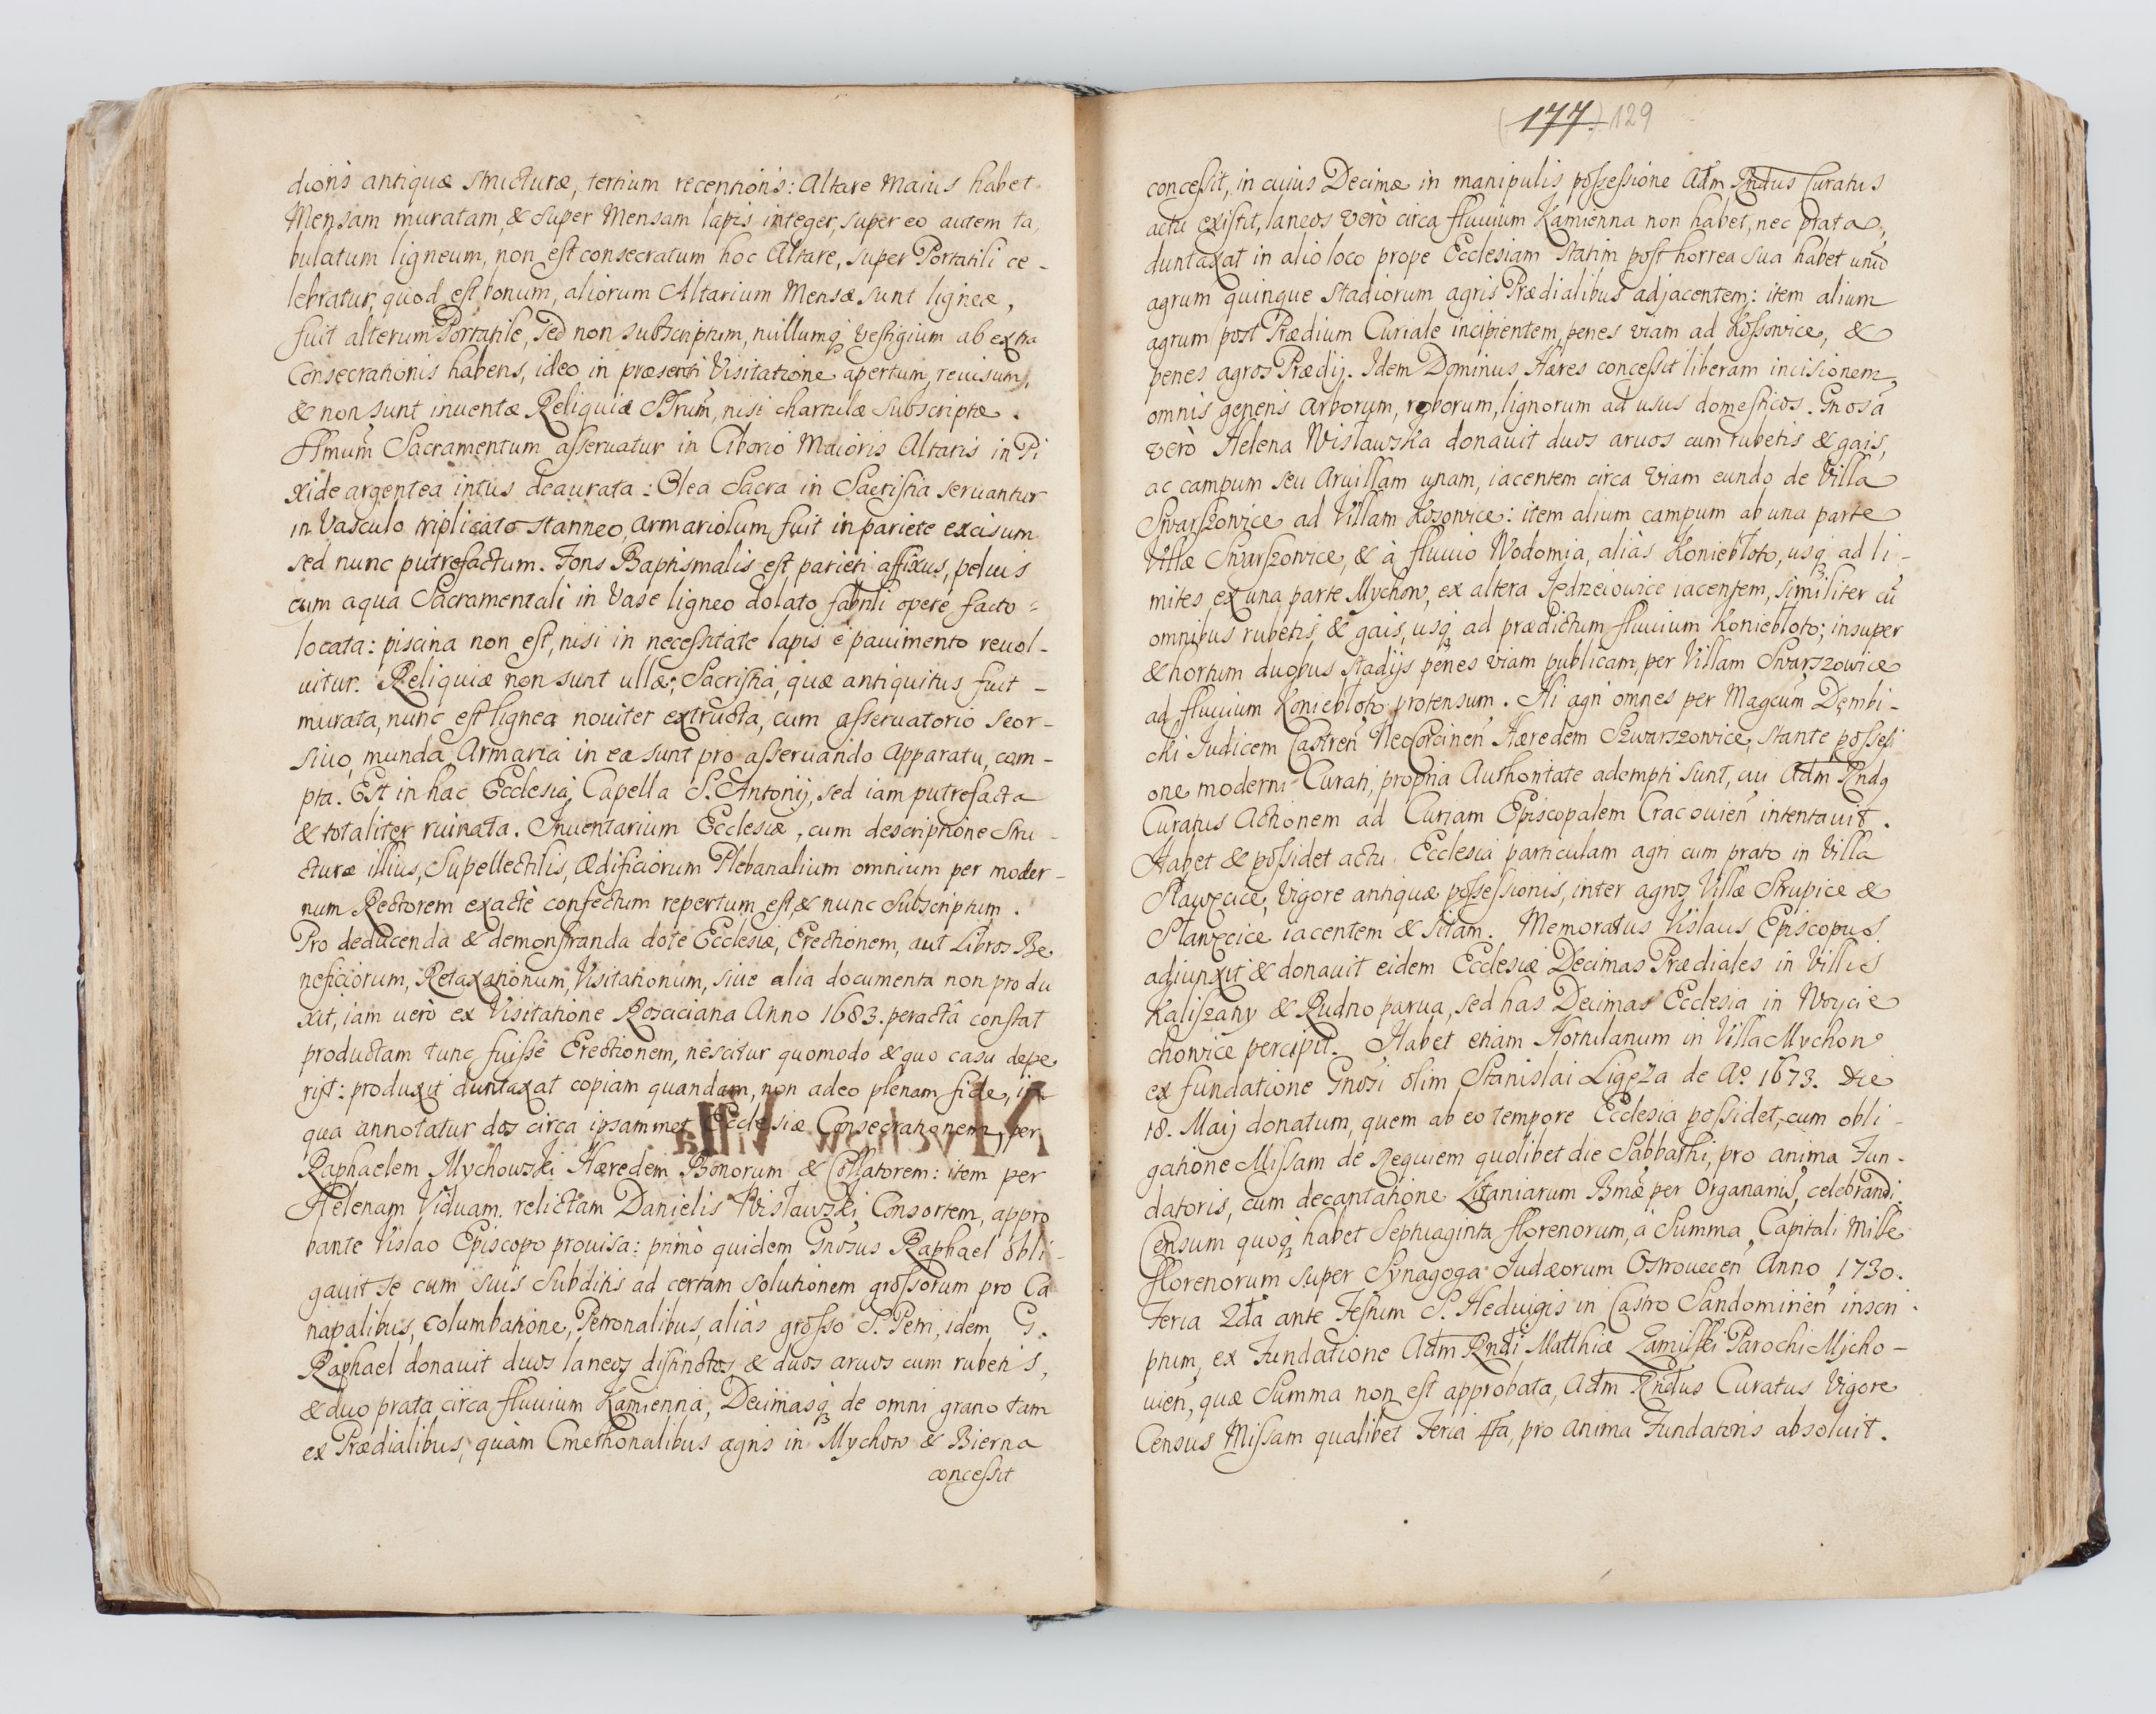 dionis antiquæ structuræ, tertium recentioris: Altare Maius habet
Mensam muratam, & super Mensam lapis integer, super eo autem ta,
bulatum ligneum, non est consecratum hoc Altare, super Portatili ce-
lebratur, quod est bonum, aliorum Altarium Mensæ sunt ligneæ,
fuit alterum Portatile, sed non subscriptum, nullumq; vestigium ab extra
Consecrationis habens, ideo in præsenti Visitatione apertum, reuisum,
& non sunt inuentæ Reliquiæ SSrum, nisi chartulæ subscriptæ.
SSmum Sacramentum asseruatur in Ciborio Maioris Altaris in Pi
xide argentea intus deaurata: Olea Sacra in Sacristia seruantur
in Vasculo triplicato stanneo, armariolum fuit in pariete excisum
sed nunc putrefactum. Fons Baptismalis est parieti affixus, peluis
cum aqua Sacramentali in Vase ligneo dolato fabrili opere facto =
locata: piscina non est, nisi in necessitate lapis è pauimento reuol-
uitur. Reliquiæ non sunt ullæ; Sacristia, quæ antiquitus fuit -
murata, nunc est lignea nouiter extructa, cum asseruatorio seor-
siuo, munda, Armaria in ea sunt pro asseruando Apparatu, com-
pta. Est in hac Ecclesia, Capella S. Antonij, sed iam putrefacta
& totaliter ruinata. Inuentarium Ecclesiæ, cum descriptione stru-
cturæ illius, Supellectilis, Ædificiorum Plebanalium omnium per moder-
num Rectorem exactè confectum repertum est, & nunc subscriptum.
Pro deducenda & demonstranda dote Ecclesiæ, Erectionem, aut Libros Be
neficiorum, Retaxationum, Visitationum, siue alia documenta non produ
xit, iam uerò ex Visitatione Rosciciana Anno 1683. peractâ constat
productam tunc fuisse Erectionem, nescitur quomodo & quo casu depe
rijt: produxit duntaxat copiam quandam, non adeo plenam fide, in
qua annotatur dos circa ipsammet Ecclesiæ Consecrationem, per
Raphaelem Mychowski Hæredem Bonorum & Collatorem: item per
Helenam Viduam. relictam Danielis Wislawski Consortem, appro
bante Vislao Episcopo prouisa: primò quidem Gnosus Raphael obli-
gauit se cum suis subditis ad certam solutionem grossorum pro Ca
napalibus, columbatione, Petronalibus, aliàs grosso S. Petri, idem G.
Raphael donauit duos laneos distinctos & duos aruos cum rubetis,
& duo prata circa fluuium Kamienna, Decimasq; de omni grano tam
ex Prædialibus, quàm Cmethonalibus agris in Mychow & Bierna
concessit
(177) 129
concessit, in cuius Decimæ in manipulis possessione Adm Rndus Curatus
actu existit, laneos verò circa fluuium Kamienna non habet, nec prata,
duntaxat in alio loco prope Ecclesiam statim post horrea sua habet unū
agrum quinque stadiorum agris Prædialibus adjacentem: item alium
agrum post Prædium Curiale incipientem, penes viam ad Kossowice, &
penes agros Prædij. Idem Dominus Hæres concessit liberam incisionem
omnis generis Arborum, roborum, lignorum ad usus domesticos. Gnosa
verò Helena Wislawska donauit duos aruos cum rubetis & gais,
ac campum seu Aruillam unam, iacentem circa viam eundo de Villa
Swarszowice ad Villam Kosowice: item alium campum ab una parte
Villæ Swarszowice, & à fluuio Wodomia, aliàs Koniebloto, usq; ad li-
mites ex una parte Mychow, ex altera Jedrzeiowice iacentem, similiter cū
omnibus rubetis & gais, usq; ad prædictum fluuium Koniebloto; insuper
& hortum duobus stadijs penes viam publicam, per Villam Swarszowice
ad fluuium Koniebloto protensum. Hi agri omnes per Magcum Dembi-
cki Judicem Castren NeoCorcinen Hæredem Szwarszowice, stante possessi
one moderni Curati, propria Authoritate adempti sunt, cui Adm Rndq
Curatus Actionem ad Curiam Episcopalem Cracouien intentauit.
Habet & possidet actu Ecclesia particulam agri cum prato in Villa
Stawęcice, Vigore antiquæ possessionis, inter agros Villæ Strupice &
Stawęcice iacentem & sitam. Memoratus Vislaus Episcopus
adiunxit & donauit eidem Ecclesiæ Decimas Prædiales in Villis
Kaliszany & Rudno parua, sed has Decimas Ecclesia in Woycie
chowice percipit. Habet etiam Hortulanum in Villa Mychow
ex fundatione Gnosi olim Stanislai Ligęza de Ao. 1673. Die
18. Maij donatum, quem ab eo tempore Ecclesia possidet, cum obli-
gatione Missam de Requiem quolibet die Sabbathi, pro anima Fun-
datoris, cum decantatione Litaniarum Bmæ per Organarius, celebrandi.
Censum quoq; habet Septuaginta florenorum, à Summa Capitali Mille
florenorum super Synagoga Judæorum Ostrouecen Anno 1730.
Feria 2da ante Festum S. Heduigis in Castro Sandomirien inscri-
ptum, ex Fundatione Adm Rndi Matthiæ Zamilski Parochi Mycho-
uien, quæ Summa non est approbata, Adm Rndus Curatus Vigore
Census Missam qualibet Feria 4ta, pro anima Fundatoris absoluit.